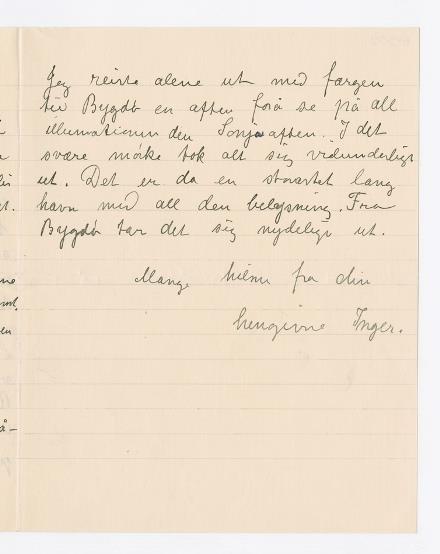 Jeg reiste alene ut med færgen
til Bygdö en aften forå se på all
illuminationen den Sonja aften. I det
svære mørke tok alt sig vidunderligt
ut. Det er da en svartet lang
havn med all den belysning. Fra
Bygdö tar det sig nydeligt ut.
Mange hilsner fra din
hengivne Inger.